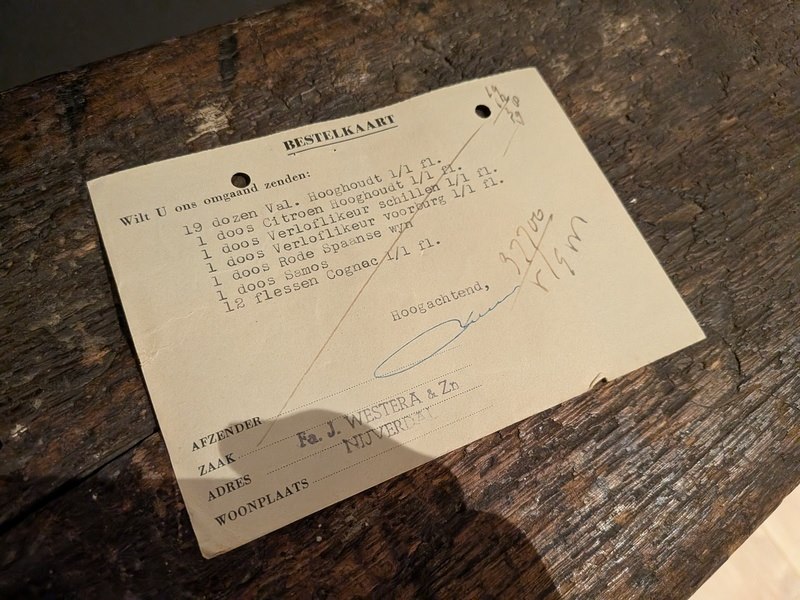 BESTELKAART
Wilt U ons omgaand zenden:
19 dozen Val. Hooghoudt 1/1 fl.
1 doos Citroen Hooghoudt 1/1 fl.
1 doos Verloflikeur schillen 1/1 fl.
1 doos Verloflikeur voorburg 1/1 fl.
1 doos Rode Spaanse wyn
1 doos Samos
12 flessen Cognac 1/1 fl.
Hoogachtend,
32700
AFZENDER
ZAAK Fa. J. WESTERA & Zn
ADRES NIJVERDAL
WOONPLAATS